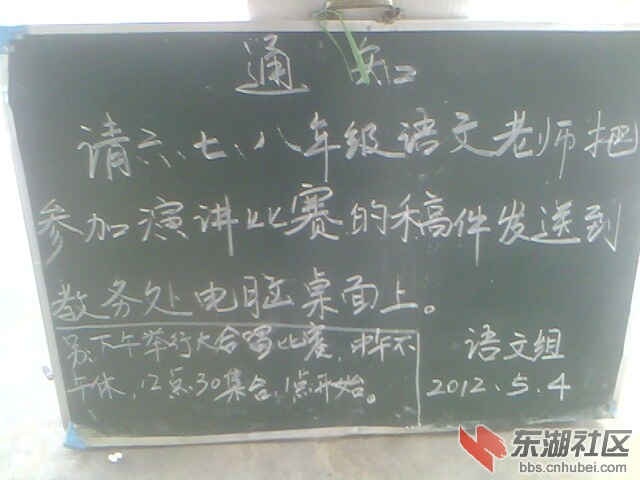 通知
请六、七、八年级语文老师把
参加演讲比赛的稿件发送到
教务处电脑桌面上。
另：下午举行大合唱比赛，中午不
午休，12点30集合，1点开始。
语文组
2012.5.4
东湖社区
bbs.cnhubei.com